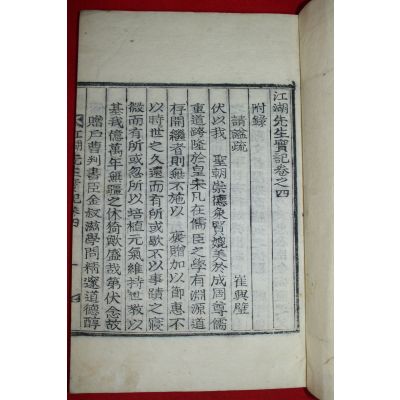 江湖先生實記卷之四
附錄
請謚疏
崔興璧
伏以我 聖朝崇德象賢媲美於成周尊儒
重道路隆於皇宋凡在儒臣之學有淵源道
存開繼者則無不施以 褒贈加以 御惠不
以時世之久遠而有所或歇不以事蹟之寢
微而有所或忽所以培植元氣維持世敎以
基我億萬年無疆之休猗歟盛哉第伏念故
贈戶曹判書臣金叔滋學問精邃道德醇
江湖先生實記卷四
一